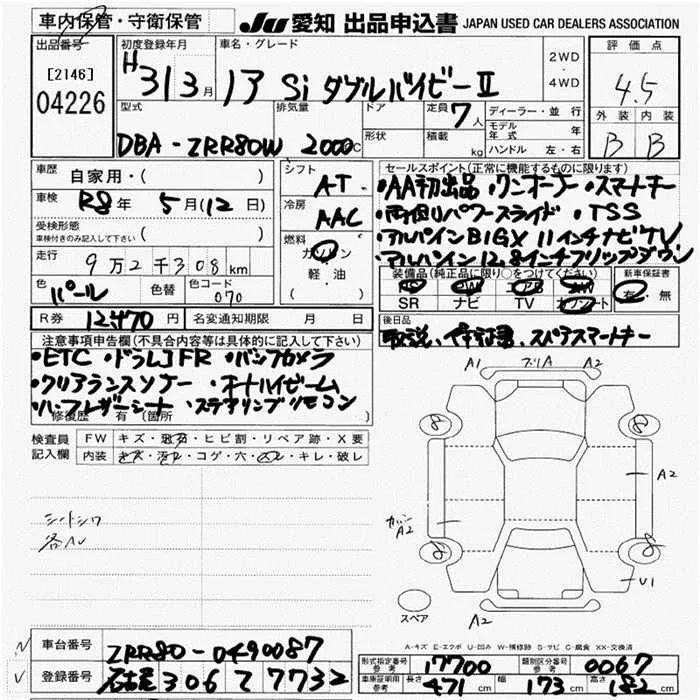 車内保管・守衛保管
JU 愛知 出品申込書 JAPAN USED CAR DEALERS ASSOCIATION
出品番号
[2146]
04226
初度登録年月
H31 3月
車名・グレード
17 Si ダブルバイビーII
2WD
・
4WD
評価点
4.5
外装 内装
B B
型式
DBA-ZRR80W
排気量
2000CC
ドア
形状
定員 7人
積載 kg
ディーラー・並行
モデル年式 年
ハンドル 左・右
車歴 自家用・( )
車検 R8年 5月(12日)
受検形態
車検付きのみ記入して下さい ( )
走行 9万2千308km
色 パール 色替 色コード 070
シフト AT
冷房 AAC
燃料 ガソリン
軽油
( )
セールスポイント(正常に機能するものに限ります)
・AA初出品 ・ワンオーナー ・スマートキー
・両側パワースライド ・TSS
・アルパインBIGX 11インチナビTV
・アルパイン12.8インチフリップダウン
装備品(純正品に限り○をつけてください)
PS PW エアB AW
SR ナビ TV カワシート
新車保証書
有・無
R券 12470円 名変通知期限 月 日
後日品
取説、保証書、スペアスマートキー
注意事項申告欄(不具合内容等は具体的に記入して下さい)
・ETC ・ドラレコFR ・バックカメラ
・クリアランスソナー ・オートハイビーム
・ハーフレザーシート ・ステアリングリモコン
修復歴 有 (箇所
検査員
記入欄
FW キズ・飛石・ヒビ割・リペア跡・X要
内装 キズ・汚れ・コゲ・穴・スレ・キレ・破レ
シートシワ
各ヘリ
A1 A2
8 8
A2
A2
8 8
U1
スペア
A2
A-キズ E-エクボ U-凹み W-補修跡 S-サビ C-腐食 XX-交換済
車台番号 ZRR80-0490087
登録番号 名古屋 306 て 7732
形式指定番号 参考 17700 類別区分番号 参考 0067
車庫証明用 参考 長さ 471cm 幅 173cm 高さ 182cm